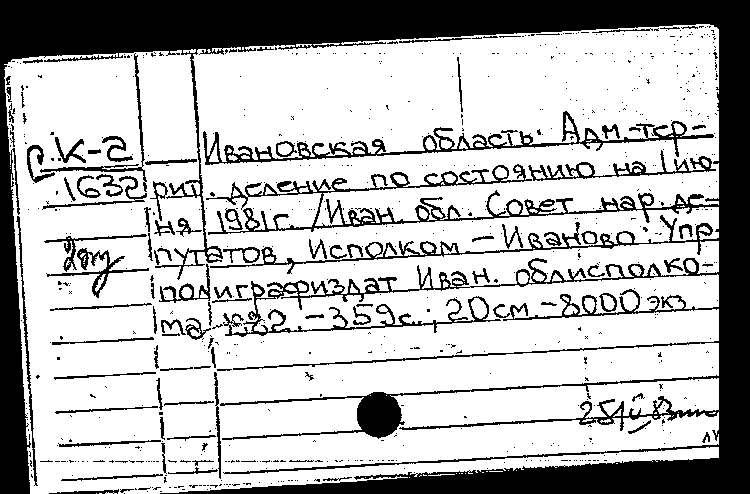 р.К-2
1632
2эку
Ивановская область: Адм.-тер-
рит. деление по состоянию на 1 ию-
ня 1981г. /Иван. обл. Совет нар. де-
путатов, Исполком. - Иваново: Упр-
полиграфиздат Иван. облисполко-
ма 1982. - 359с.; 20см. - 8000 экз.